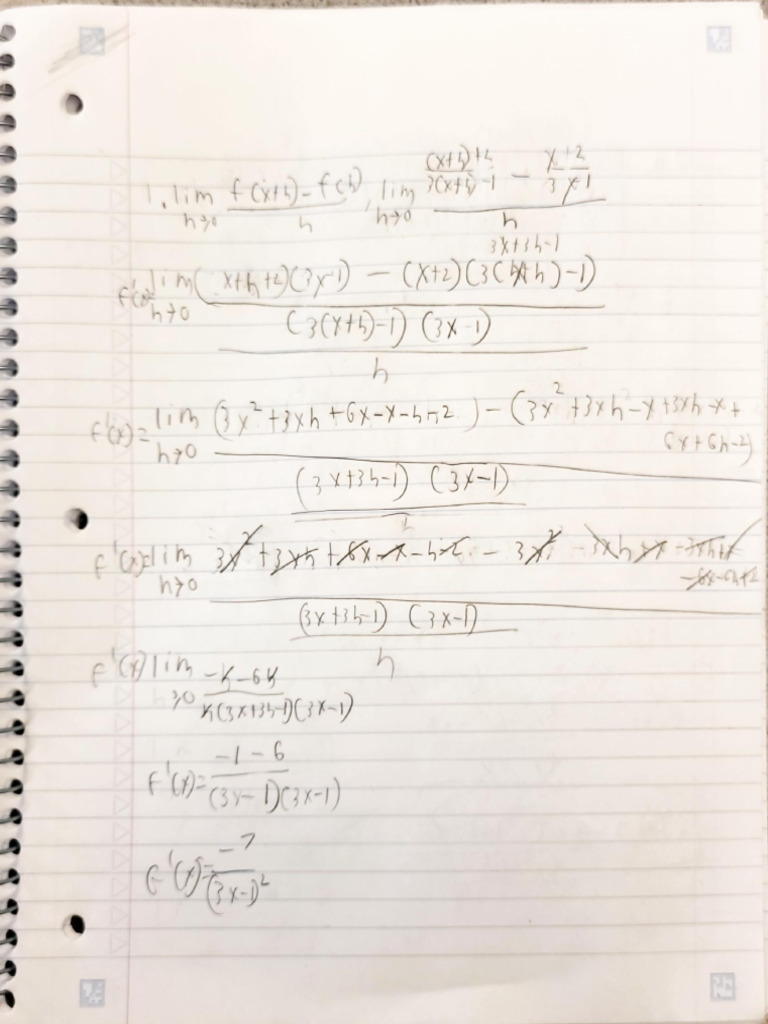 1. lim h→0 (f(x+h) - f(h))/h, lim h→0 (((x+h)+2)/(3(x+h)-1) - (x+2)/(3x-1))/h
3x+3h-1
f'(x)= lim h→0 ((x+h+2)(3x-1) - (x+2)(3(x+h)-1))/((3(x+h)-1)(3x-1))/h
f'(x)= lim h→0 ((3x²+3xh+6x-x-h-2) - (3x²+3xh-x+3xh-x+
6x+6h-2))/((3x+3h-1)(3x-1))/h
f'(x)= lim h→0 (3x²+3xh+6x-x-h-2 - 3x² -3xh+x -3xh+x
-6x-6h+2)/((3x+3h-1)(3x-1))/h
f'(x) lim h→0 (-h-6h)/(h(3x+3h-1)(3x-1))
f'(x)= (-1-6)/((3x-1)(3x-1))
f'(x)= -7/(3x-1)²